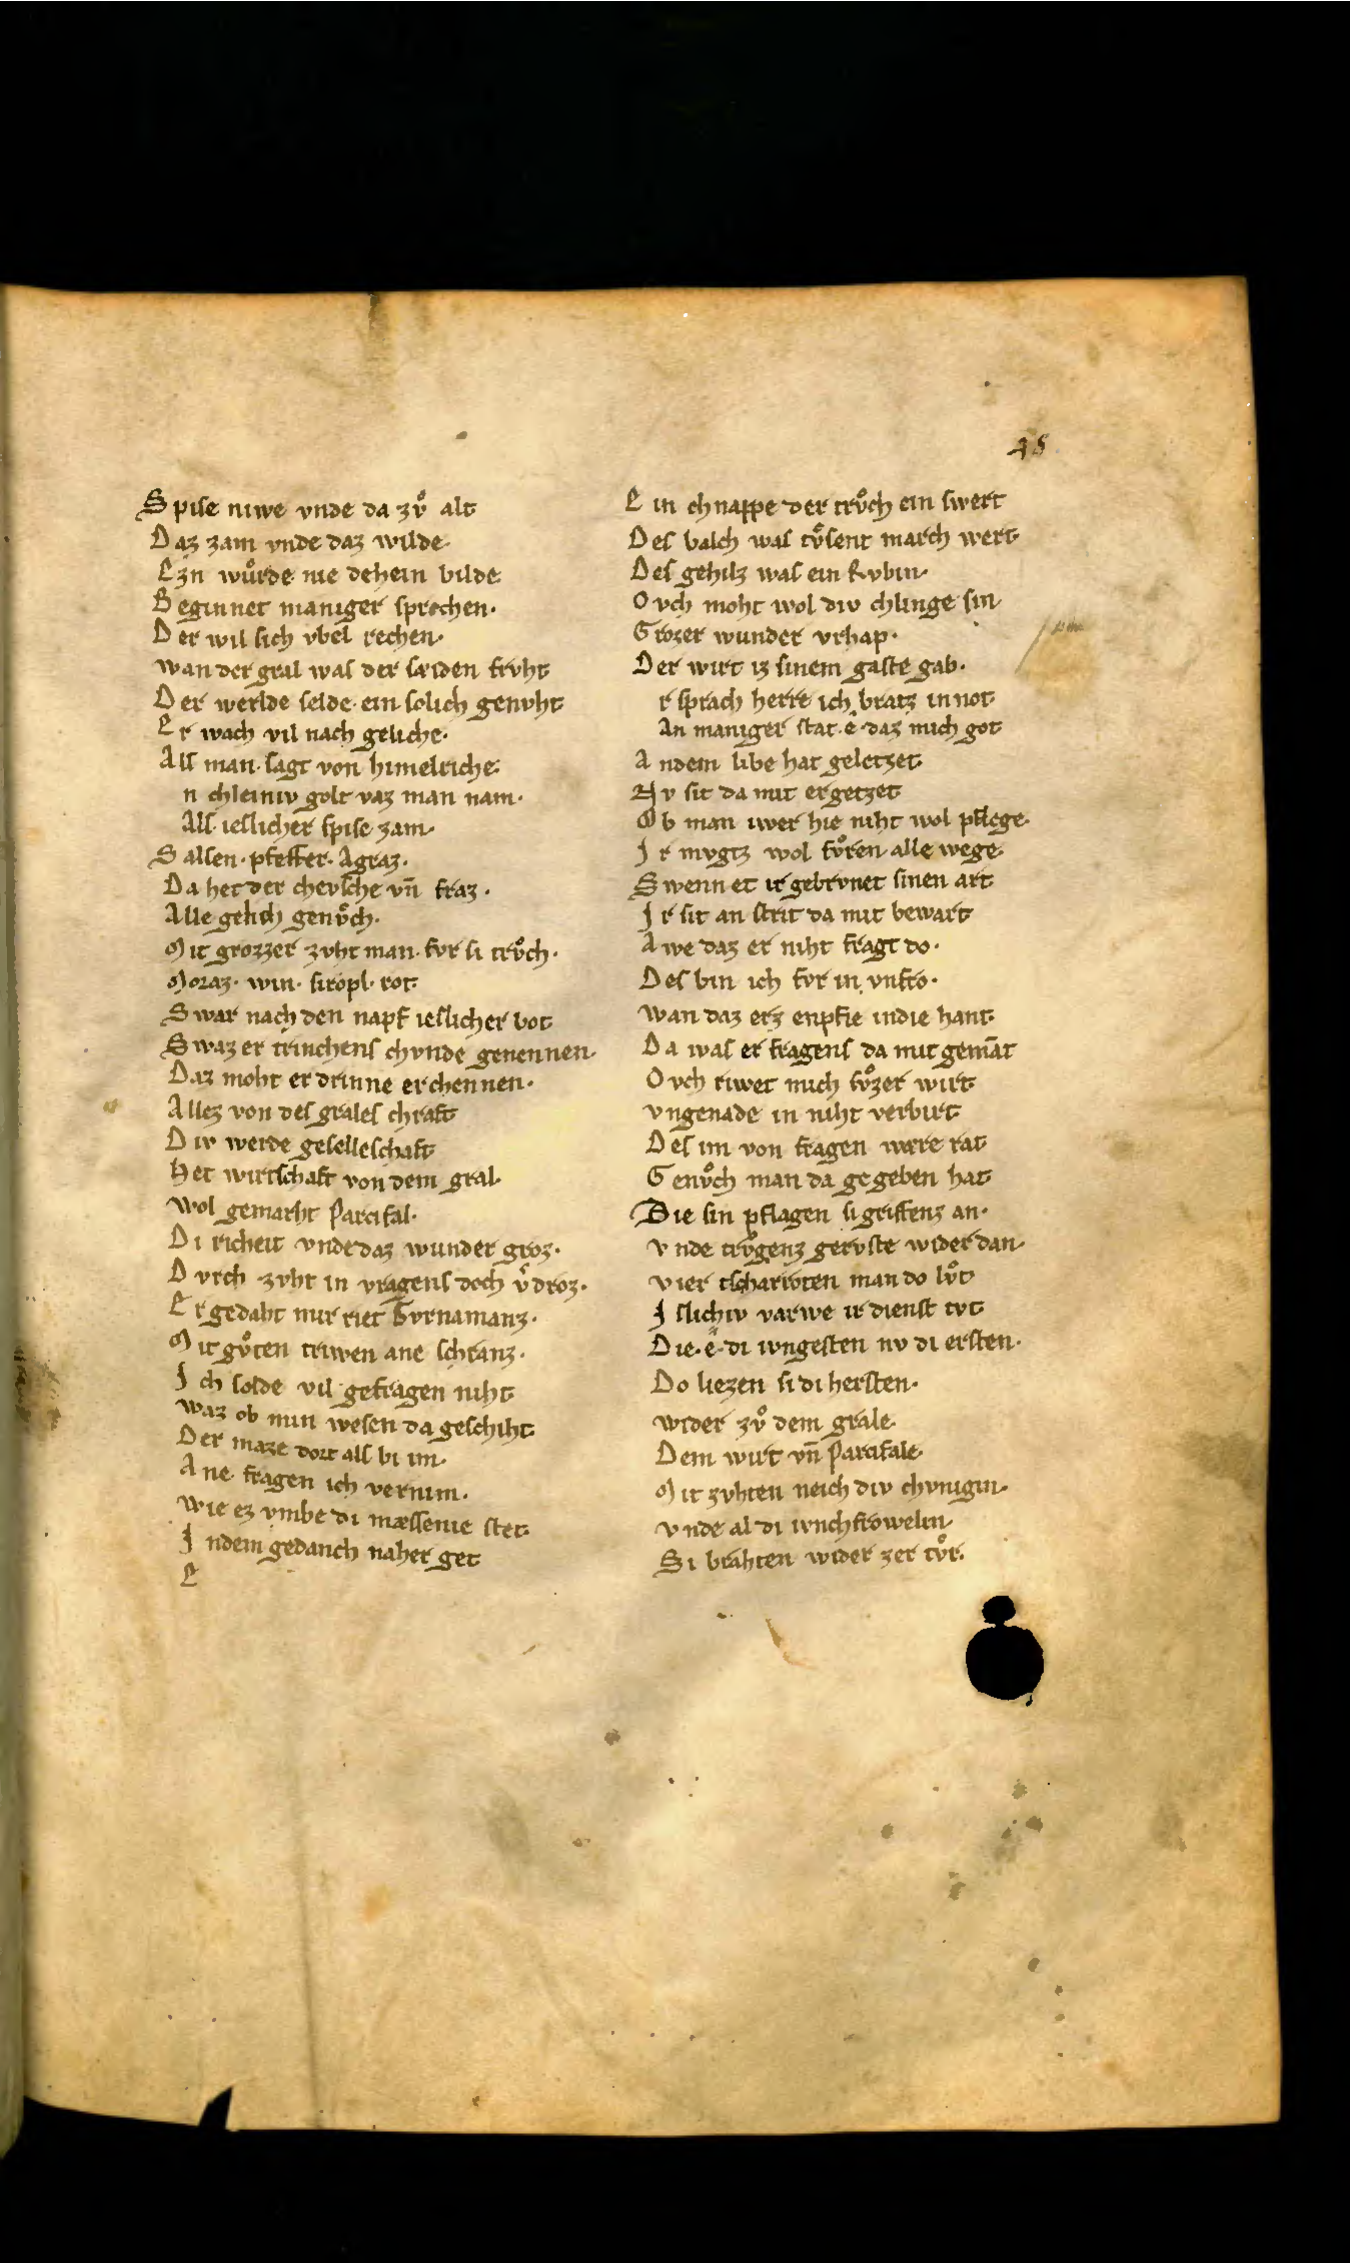 48
Spise niwe vnde da zvͦ alt
Daz zam vnde daz wilde
Ezn wuͦrde nie dehein bilde
Beginnet maniger sprechen·
Der wil sich vbel rechen·
wan der gral was der sælden frvht
Der werlde selde ein solich genvht
Er wach vil nach geliche·
Als man sagt von himelriche
n chleiniv golt vaz man nam·
Als ieslicher spise zam·
Salsen· pfeffer· Agraz·
Da het der chevsche vn̄ fraz·
Alle gelich genvͦch·
Mit grozzer zvht man fvr si trvͦch·
Moraz· win· siropl· rot
Swar nach den napf ieslicher bot
Swaz er trinchens chvnde genennen·
Daz moht er drinne erchennen·
Allez von des grales chraft
Div werde geselleschaft
Het wirtschaft von dem gral·
wol gemarht Parcifal·
Di richeit vnde daz wunder groz·
Dvrch zvht in vragens doch vͦdroz·
Er gedaht mir riet Gvrnamanz·
Mit gvͦten triwen ane schranz·
Ich solde vil gefragen niht
waz ob min wesen da geschiht
Der maze dort als bi im·
Ane fragen ich vernim·
wie ez vmbe di mæssenie stet
Indem gedanch naher get
E
Ein chnappe der trvͦch ein swert
Des balch was tvͦsent march wert
Des gehilz was ein Rvbin·
Ovch moht wol div chlinge sin
Grozer wunder vrhap·
Der wirt iz sinem gaste gab·
r sprach herre ich bratz in not
An maniger stat ·e· daz mich got
Andem libe hat geletzet
Nv sit da mit ergetzet
Ob man iwer hie niht wol pflege
Ir mvgtz wol fvͦren alle wege
Swenn et ir gebrvnet sinen art
Ir sit an strit da mit bewart
Awe daz er niht fragt do·
Des bin ich fvr in vnfro·
wan daz erz enpfie indie hant
Da was er fragens da mit gemāt
Ovch riwet mich svͦzer wirt
vngenade in niht verbirt
Des im von fragen were rat
Genvͦch man da gegeben hat
Die sin pflagen si griffenz an·
vnde trvͦgenz gervste wider dan·
vier tscharroten man do lvͦt
Islichiv varwe ir dienst tvt
Die ·e· di ivngesten nv di ersten·
Do liezen si di hersten·
wider zvͦ dem grale
Dem wirt vn̄ Parcifale
Mit zvhten neich div chvnigin·
vnde al di ivnchfrowelin
Si brahten wider zer tvͦr·